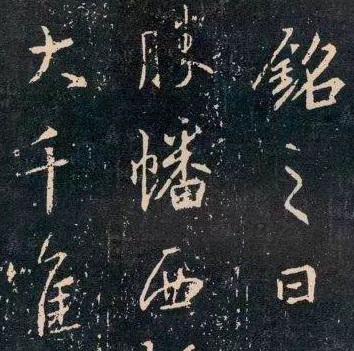 銘之曰
勝幡西
大千唯